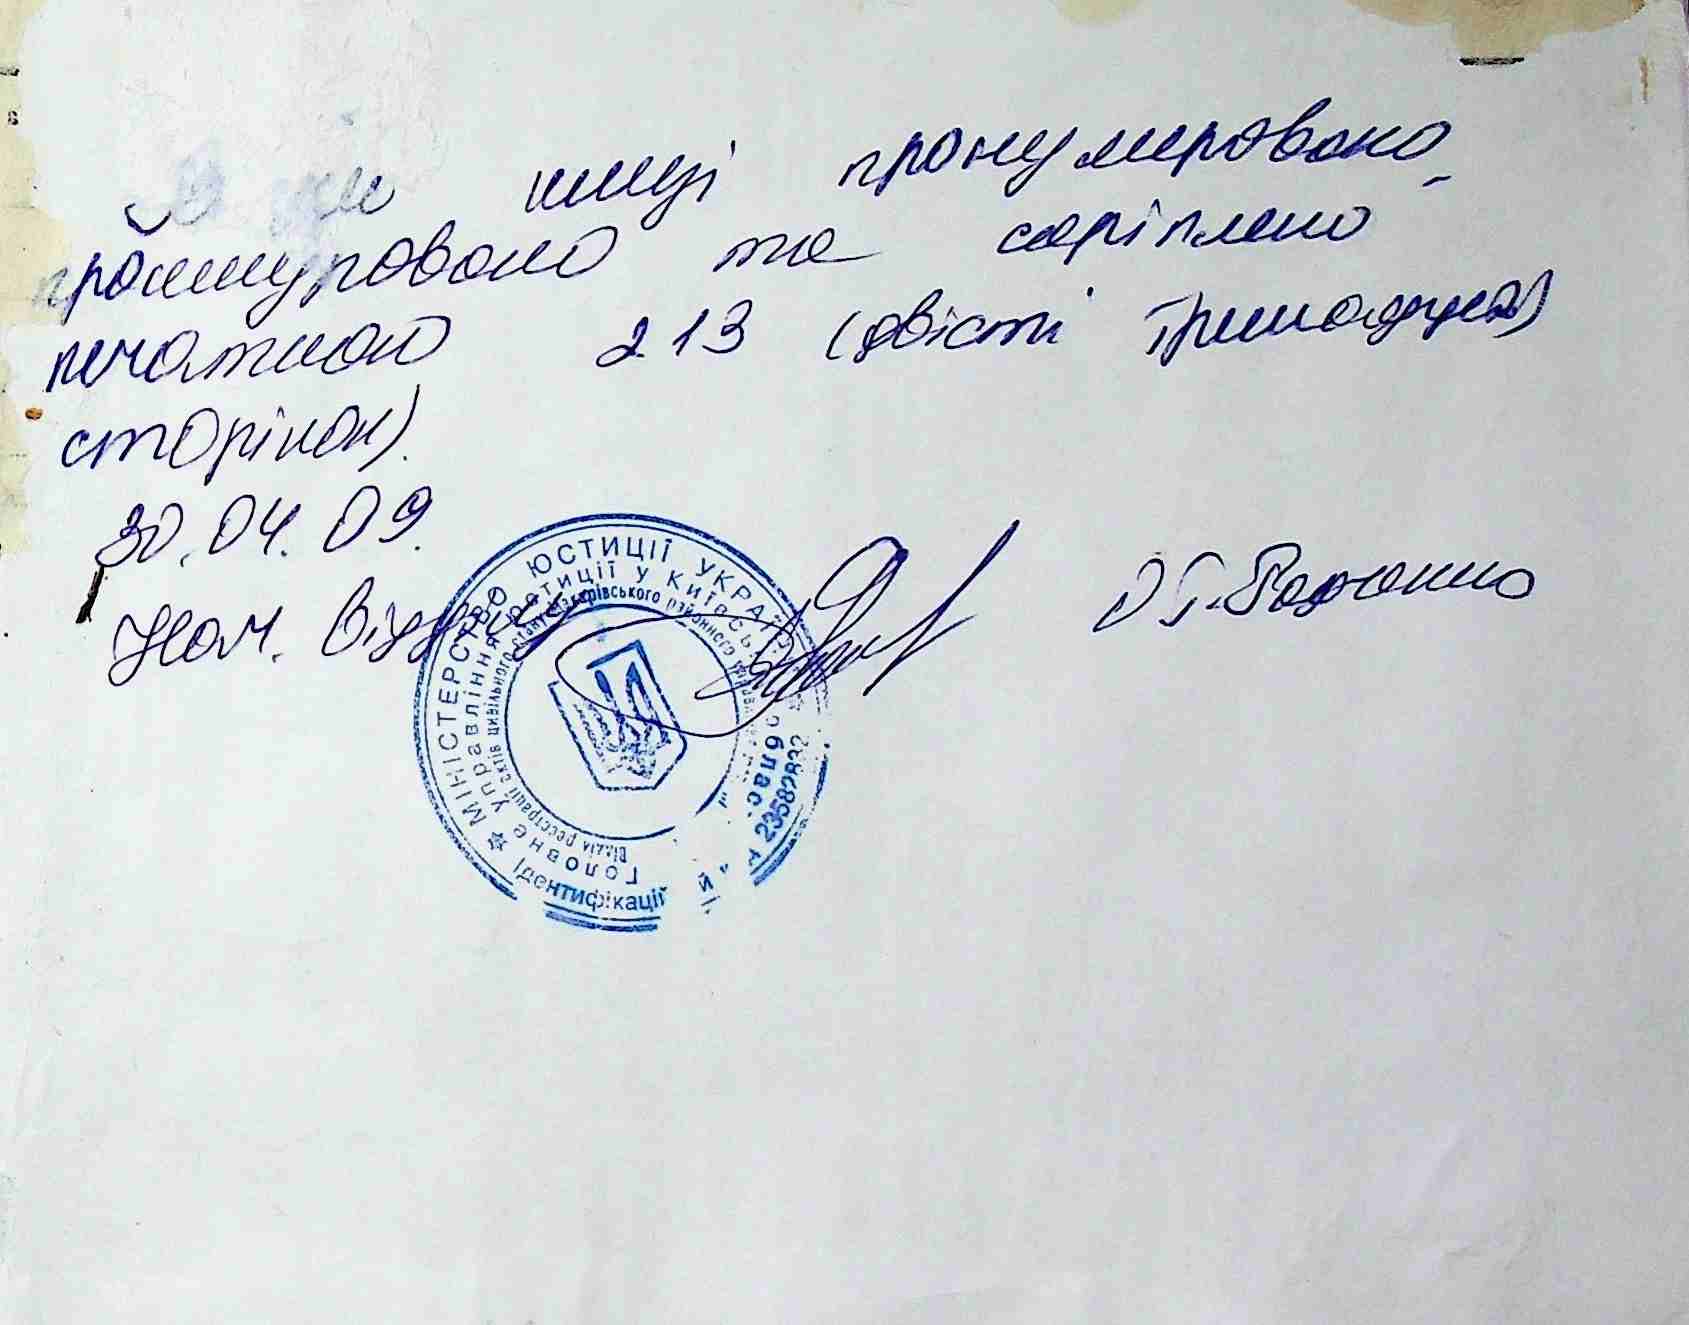 книзі пронумеровано,
прошнуровано та скріплено
печаткою 213 (двісті тринадцять)
сторінок).
30.04.09.
Нач. відділу
МІНІСТЕРСТВО ЮСТИЦІЇ УКРАЇНИ
Головне управління юстиції у Київській
Відділ реєстрації актів цивільного стану Макарівського районного
Ідентифікаційний
23582832